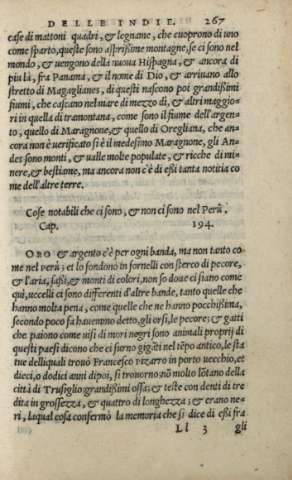 DELLE INDIE. 267
case di mattoni quadri, & legname, che cuoprono di uno
come sparto, queste sono asprissime montagne, se ci sono nel
mondo, & uengono della nuoua Hispagna, & ancora di
piu là, fra Panama, & il nome di Dio, & arriuano allo
stretto di Magaglianes, di questi nascono poi grandissimi
fiumi, che cascano nel mare di mezzo dì, & altri maggio-
ri in quella di tramontana, come sono il fiume dell'argen-
to, quello di Maragnone, & quello di Oregliana, che an-
cora non è uerificato si è il medesimo Maragnone, gli An-
des sono monti, & ualle molto populate, & ricche di mi-
nere, & bestiame, ma ancora non c'è di essi tanta notitia co
me dell'altre terre.
Cose notabili che ci sono, & non ci sono nel Perù,
Cap. 194.
ORO & argento c'è per ogni banda, ma non tanto co
me nel perù; et lo fondono in fornelli con sterco di pecore,
& l'aria, sassi, & monti di colori, non so doue ci siano come
qui, uccelli ci sono differenti d'altre bande, tanto quelle che
hanno molta pena, come quelle che ne hanno pochissima,
secondo poco fa hauemmo detto, gli orsi, le pecore; & gatti
che paiono come uisi di mori negri sono animali proprij di
questi paesi dicono che ci furno gigāti nel tēpo antico, le sta
tue delli quali trouò Francesco PIZARRO in porto uecchio, et
dieci, o dodeci anni dipoi, si trouorno nō molto lōtano della
città di Trusiglio grandissimi ossa; & teste con denti di tre
dita in grossezza, & quattro di longhezza; & erano ne-
ri, la qual cosa confermò la memoria che si dice di essi fra
Ll 3 gli